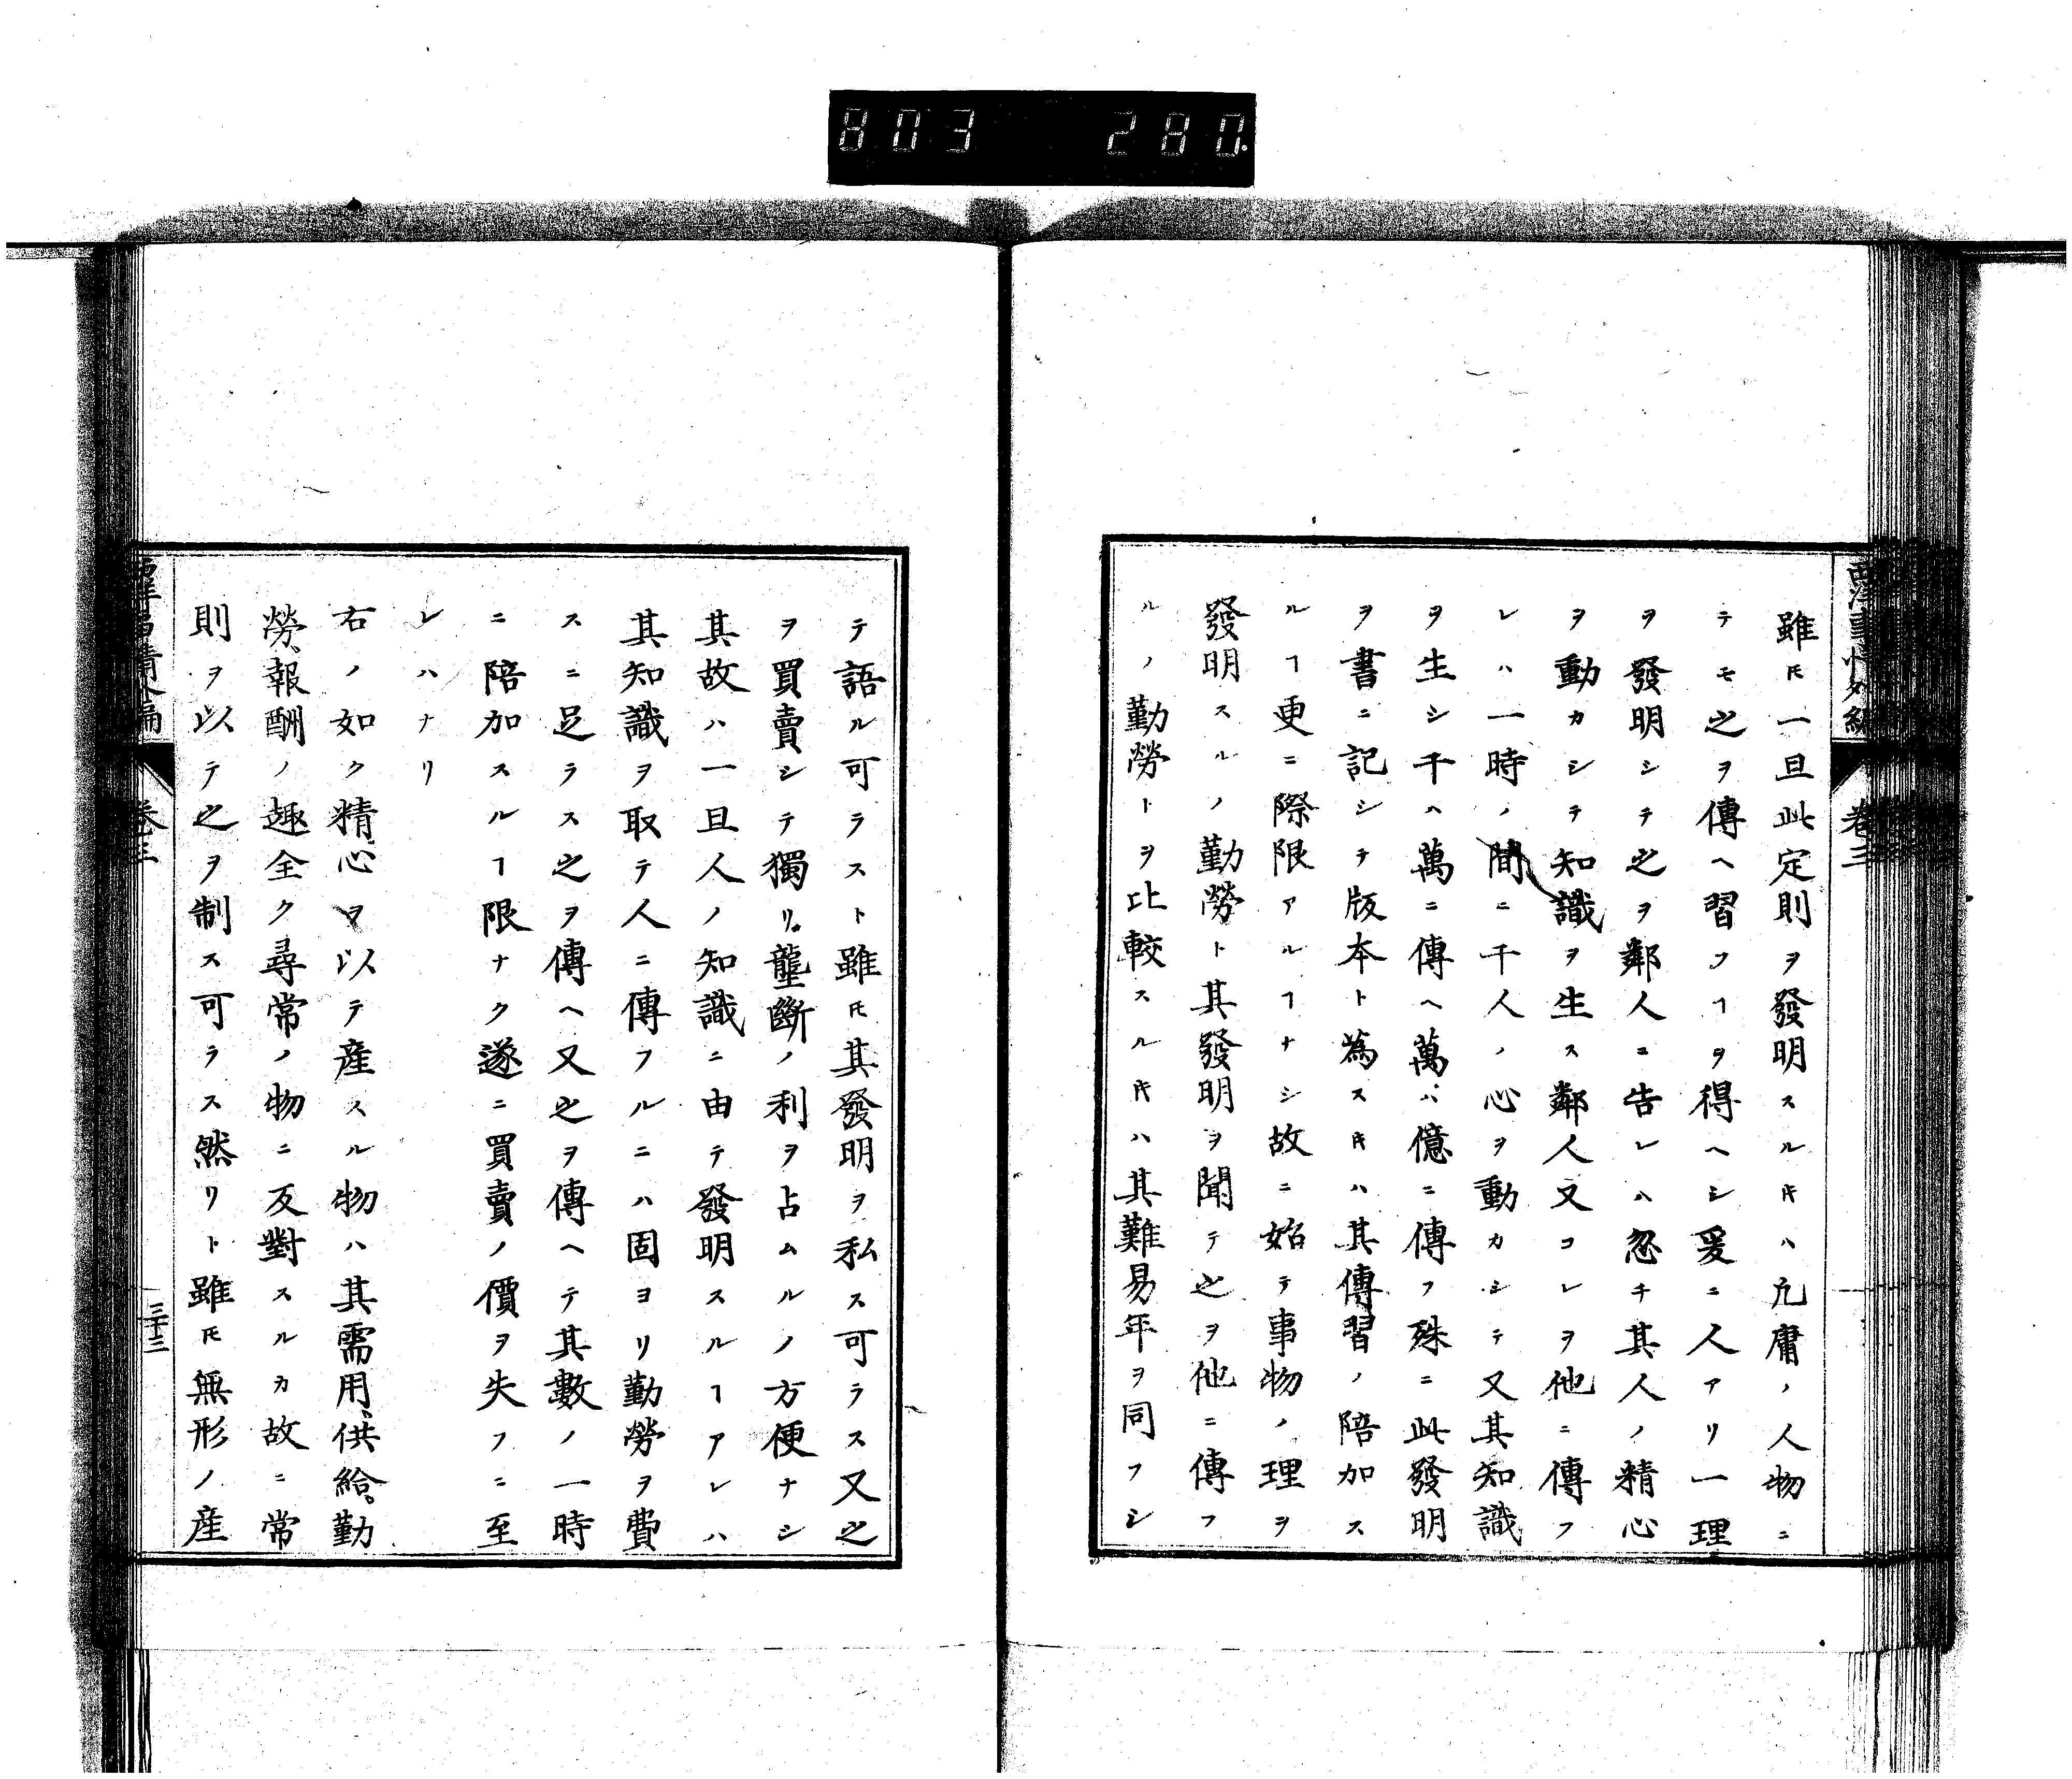 803 280
西洋事情外編
卷三
雖𪜈一旦此定則ヲ發明スル𪜈ハ凡庸ノ人物ニ
テモ之ヲ傳ヘ習フヿヲ得ヘシ爰ニ人アリ一理
ヲ發明シテ之ヲ鄰人ニ告レハ忽チ其人ノ精心
ヲ動カシテ知識ヲ生ス鄰人又コレヲ他ニ傳フ
レハ一時ノ間ニ千人ノ心ヲ動カシテ又其知識
ヲ生シ千ハ萬ニ傳ヘ萬ハ億ニ傳フ殊ニ此發明
ヲ書ニ記シテ版本ト為ス𪜈ハ其傳習ノ陪加ス
ルヿ更ニ際限アルヿナシ故ニ始テ事物ノ理ヲ
發明スルノ勤勞ト其發明ヲ聞テ之ヲ他ニ傳フ
ルノ勤勞トヲ比較スル𪜈ハ其難易年ヲ同フシ
テ語ル可ラスト雖𪜈其發明ヲ私ス可ラス又之
ヲ買賣シテ獨リ龍斷ノ利ヲ占ムルノ方便ナシ
其故ハ一旦人ノ知識ニ由テ發明スルヿアレハ
其知識ヲ取テ人ニ傳フルニハ固ヨリ勤勞ヲ費
スニ足ラス之ヲ傳ヘ又之ヲ傳ヘテ其數ノ一時
ニ陪加スルヿ限ナク遂ニ買賣ノ價ヲ失フニ至
レハナリ
右ノ如ク精心ヲ以テ産スル物ハ其需用、供給、勤
勞、報酬ノ趣全ク尋常ノ物ニ反對スルカ故ニ常
則ヲ以テ之ヲ制ス可ラス然リト雖𪜈無形ノ産
西洋事情外編
卷三
三十三